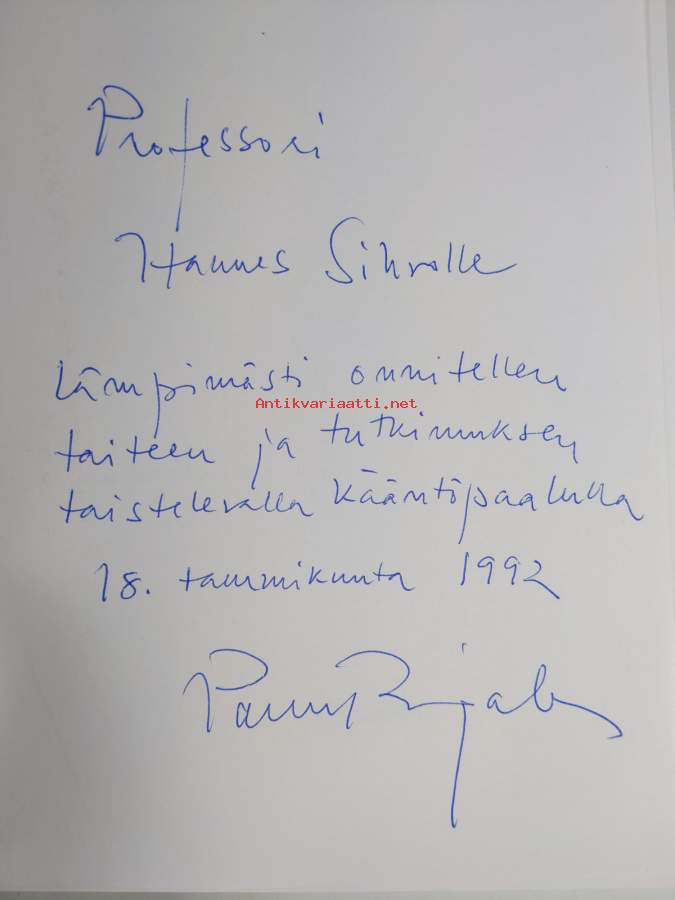 Professori
Hannes Sihvolle
Lämpimästi onnitellen
Antikvariaatti.net
taiteen ja tutkimuksen
taistelevalla kääntöpaalulla
18. tammikuuta 1992
Panu Rajala